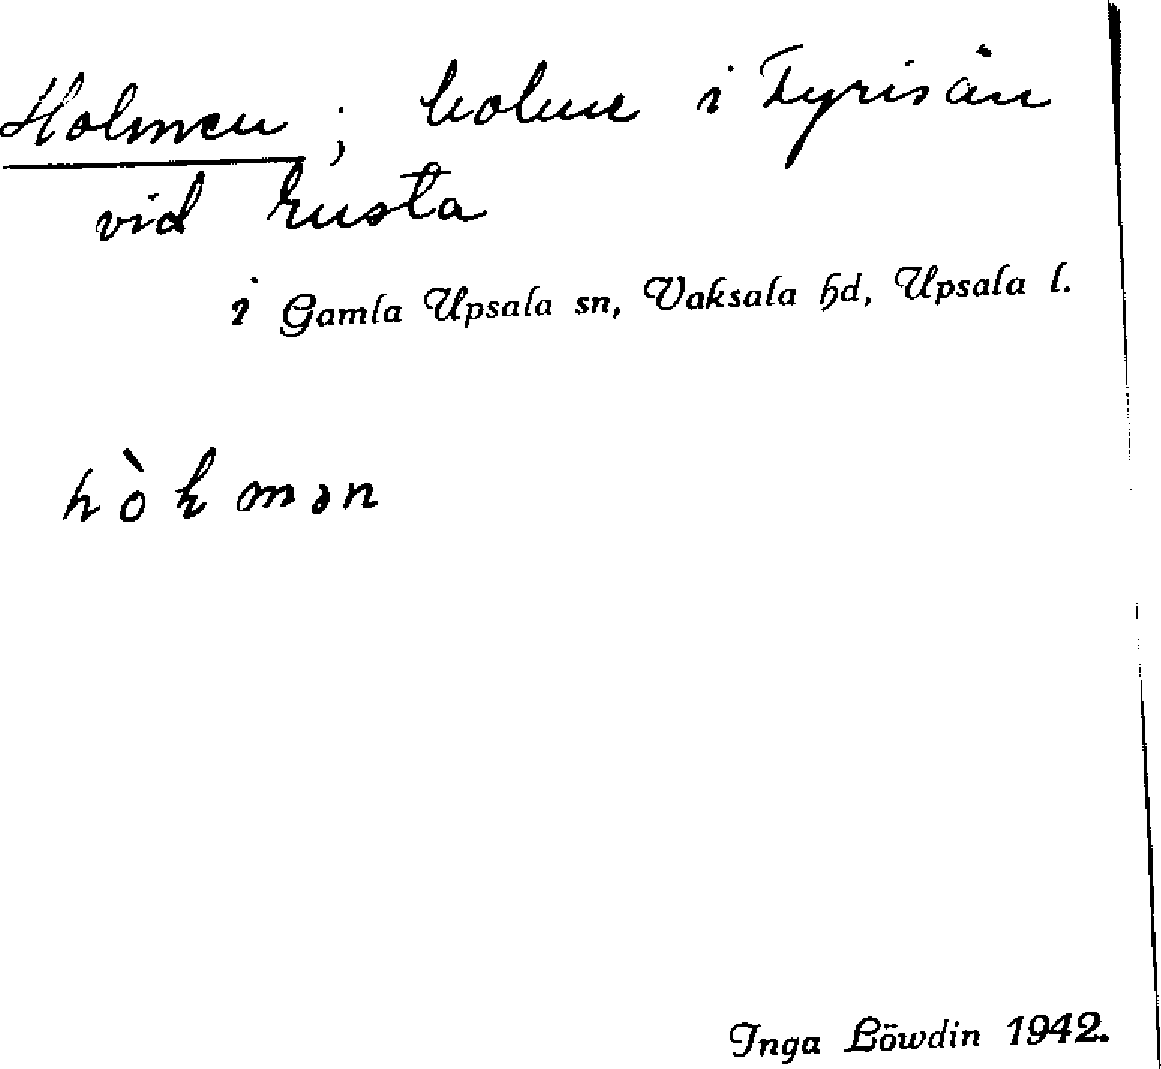 Holmen ; holme i Fyrisån
vid husta
i Gamla Upsala sn, Vaksala hd, Upsala l.
Inga Löwdin 1942.